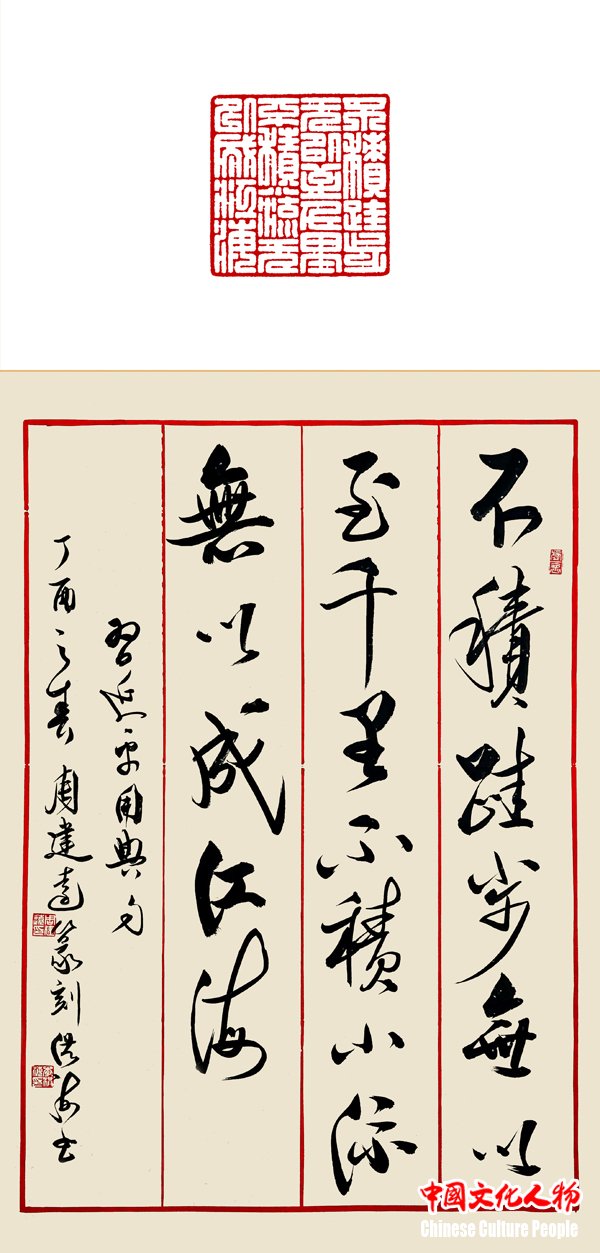 不積跬步
无以至千里
不積小流无
以成江海
不積跬步無以
至千里不積小流
無以成江海
習近平用典句
丁酉之春周建遠篆刻海书
中國文化人物
Chinese Culture People